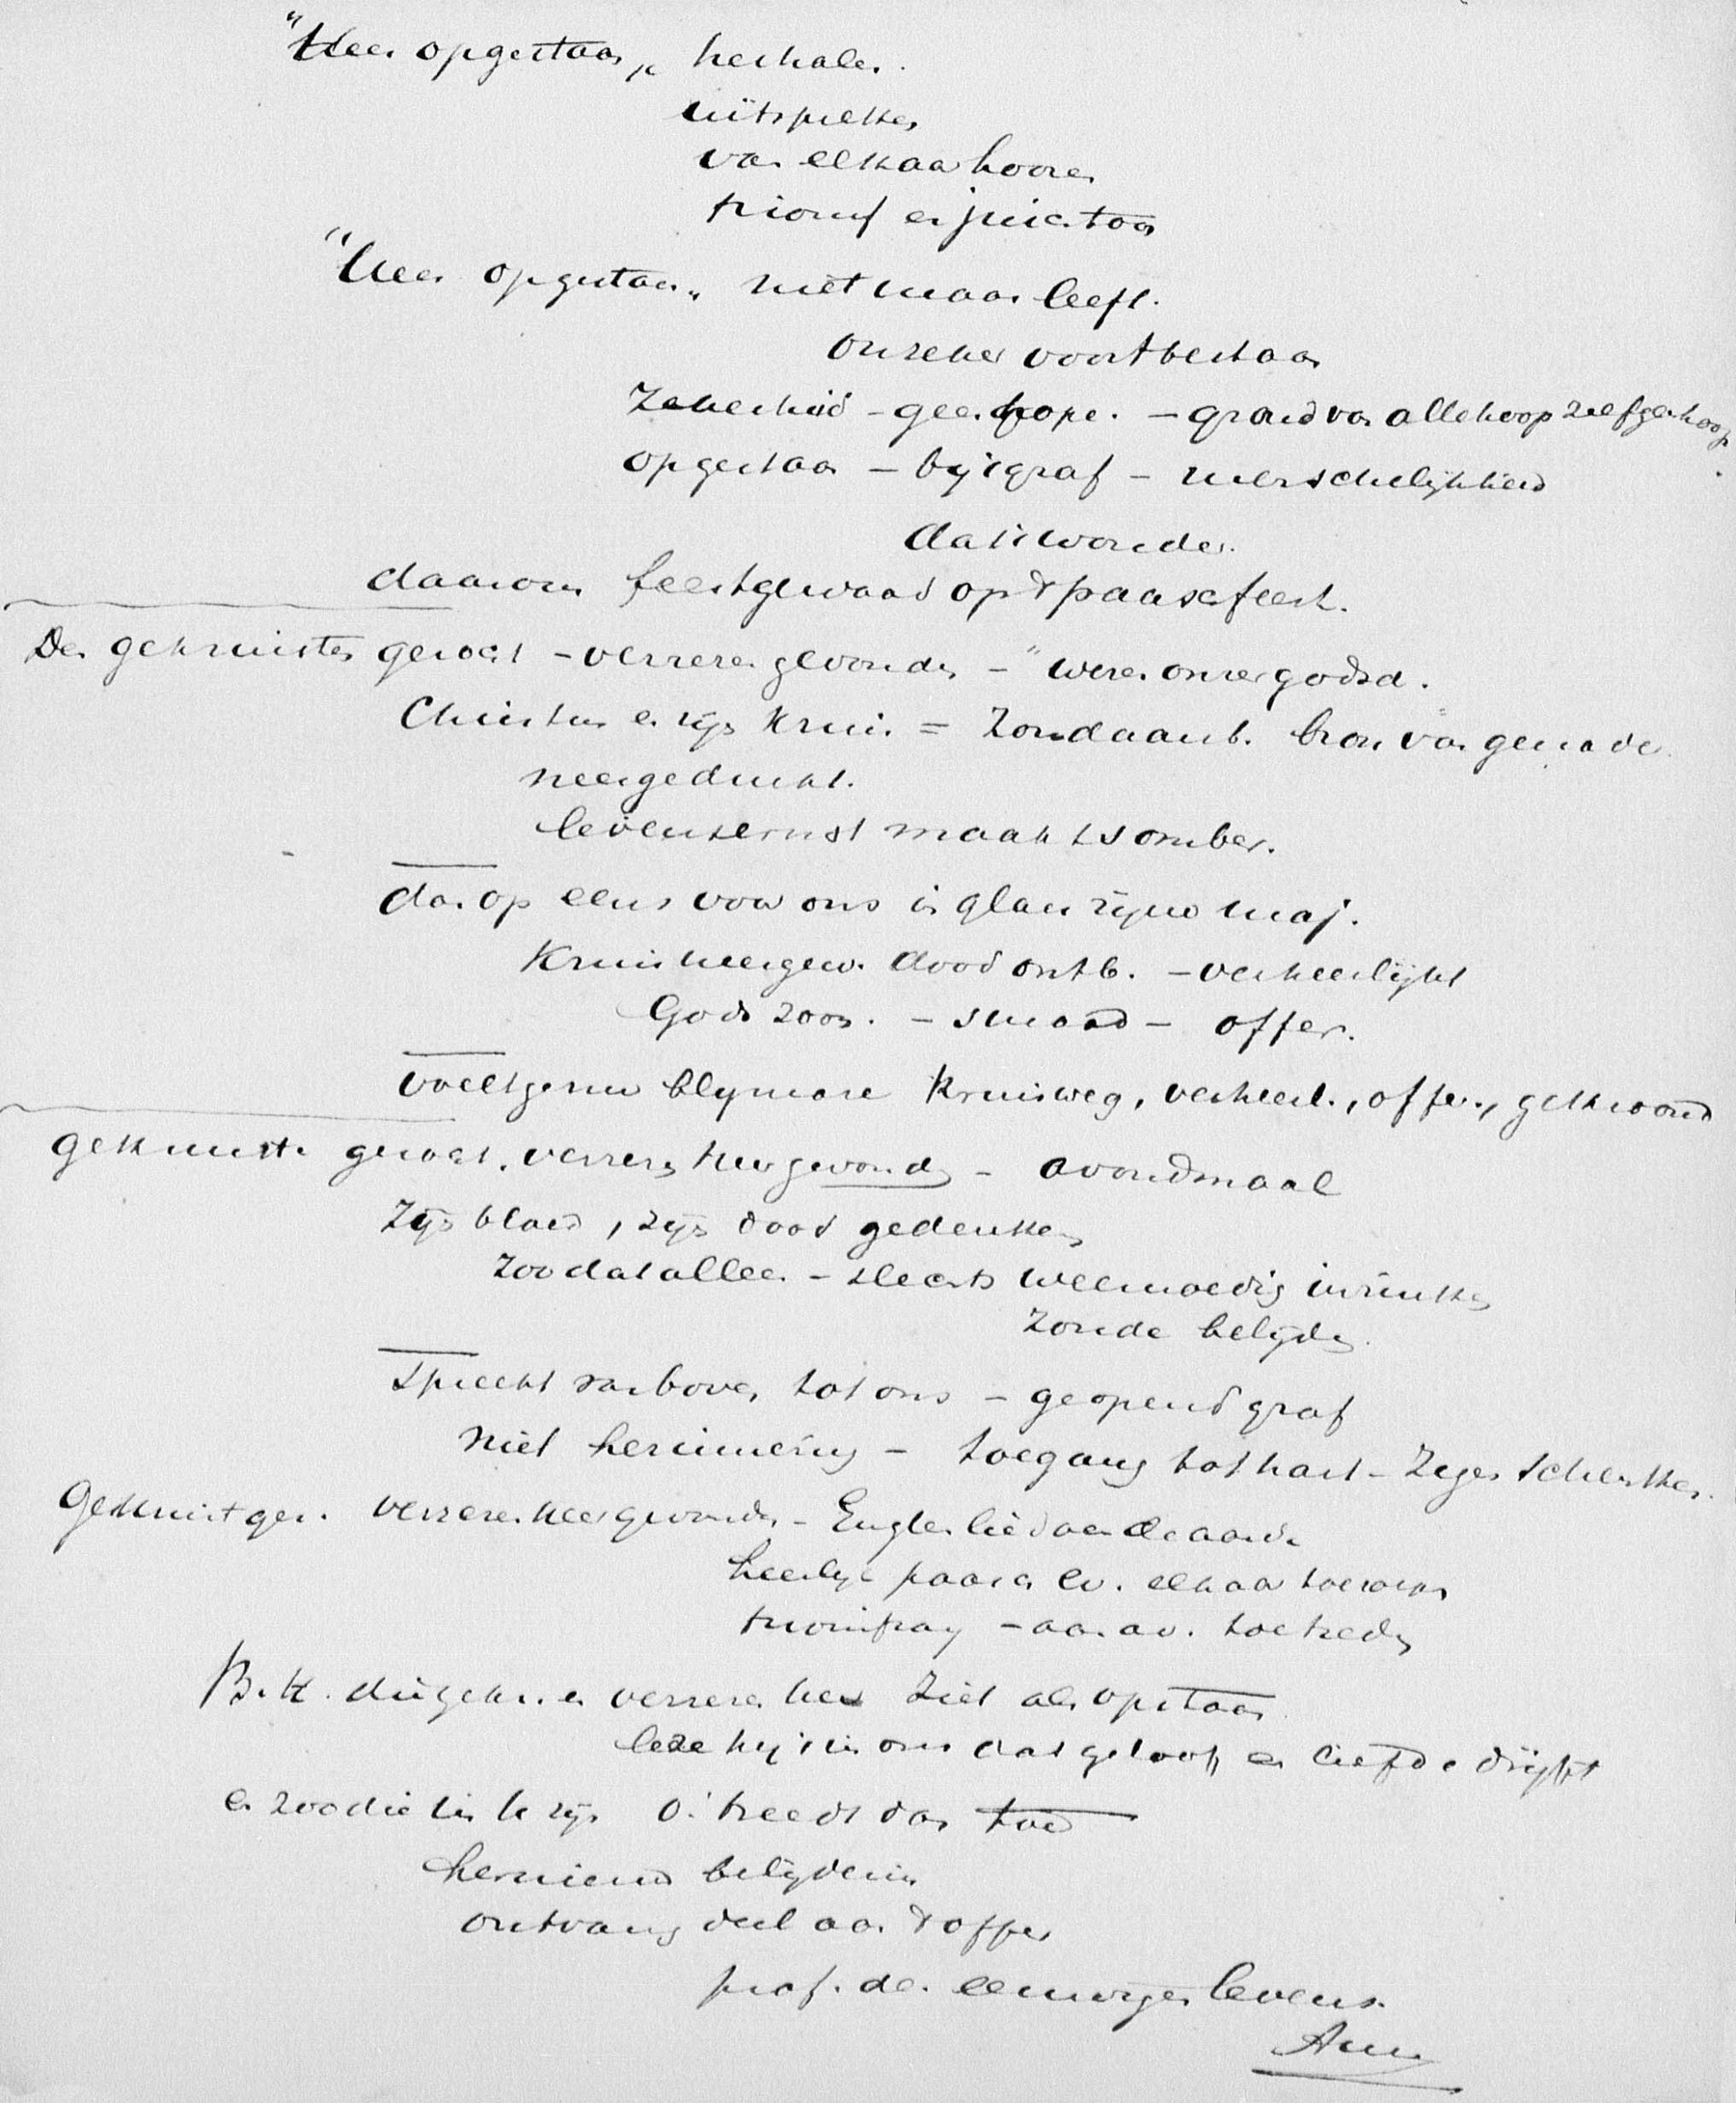 "Heer opgestaan" herhalen.
uitspreken
van elkaar hooren
triomf en juichtoon
"Heer opgestaan" niet maar leeft.
onzeker voortbestaan
Zekerheid - geen hope. - grond van alle hoop zelf geen hoop
opgestaan - bij 't graf - menschelijkheid
dat is wonder.
daarom feestgewaad op 't paaschfeest.
Den gekruisten gezocht - verrezen gevonden - "weest onze godsd.
Christus en zijn kruis = Zondaarsb. bron van genade
neergedrukt.
levensernst maakt somber.
dan op eens voor ons in glans zijner maj.
Kruis neergew. dood ontb. - verheerlijkt
Gods zoon. - smaad - offer.
voelt ge nu blymare kruisweg, verheerl., offer, gekroond
gekruiste gezocht. verrezen heer gevonden - avondmaal
Zijn bloed, zijn dood gedenken
Zoo dat alleen - slechts weemoedig indrukken
Zonde belijden.
Spreekt van boven tot ons - geopend graf
niet herinnering - toegang tot hart - Zegen schenken.
Gekruist gez. verrezen heer gevonden - Englenlied aan de aarde
heerlijk paasch ev. elkaar toeroepen
triomf - aan av. toetreden
B. K. die gekr. en verrezen heer Ziet als opstaan
leze hij in ons dat geloof en liefde drijft
en zoo die hier te zijn O! treedt dan toe
hernieuwd belijdenis
ontvang deel aan 't offer
prof. de. eeuwigen levens.
Amen